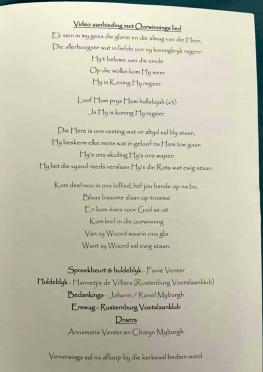 Video aanbieding met Oorwinnings lied
Ek sien in my gees die glorie en die almag van die Heer,
Die allerhoogste wat in liefde oor sy koningkryk regeer
Hy't belowe aan die einde
Op die wolke kom Hy weer
Hy is Koning Hy regeer.
Loof Hom prys Hom hallelujah (x3)
Ja Hy is koning Hy regeer.
Die Here is ons vesting wat vir altyd sal bly staan,
Hy beskerm elke mens wat in geloof na Hom toe gaan
Hy's ons skuiling Hy's ons wapen
Hy het die vyand reeds verslaan Hy's die Rots wat ewig staan.
Kom deel nou in ons loflied, hef jou hande op na bo,
Blaas basuine slaan op tromme
En kom dans voor God se oë
Kom leef in die oorwinning
Van sy Woord waarin ons glo
Want sy Woord sal ewig staan.
Spreekbeurt & huldeblyk - Fanie Venter
Huldeblyk - Hannetjie de Villiers (Rustenburg Voetslaanklub)
Bedankings - Johann / Ronel Myburgh
Erewag - Rustenburg Voetslaanklub
Draers
Annamarie Venter en Charyn Myburgh
Verversings sal na afloop by die kerksaal bedien word